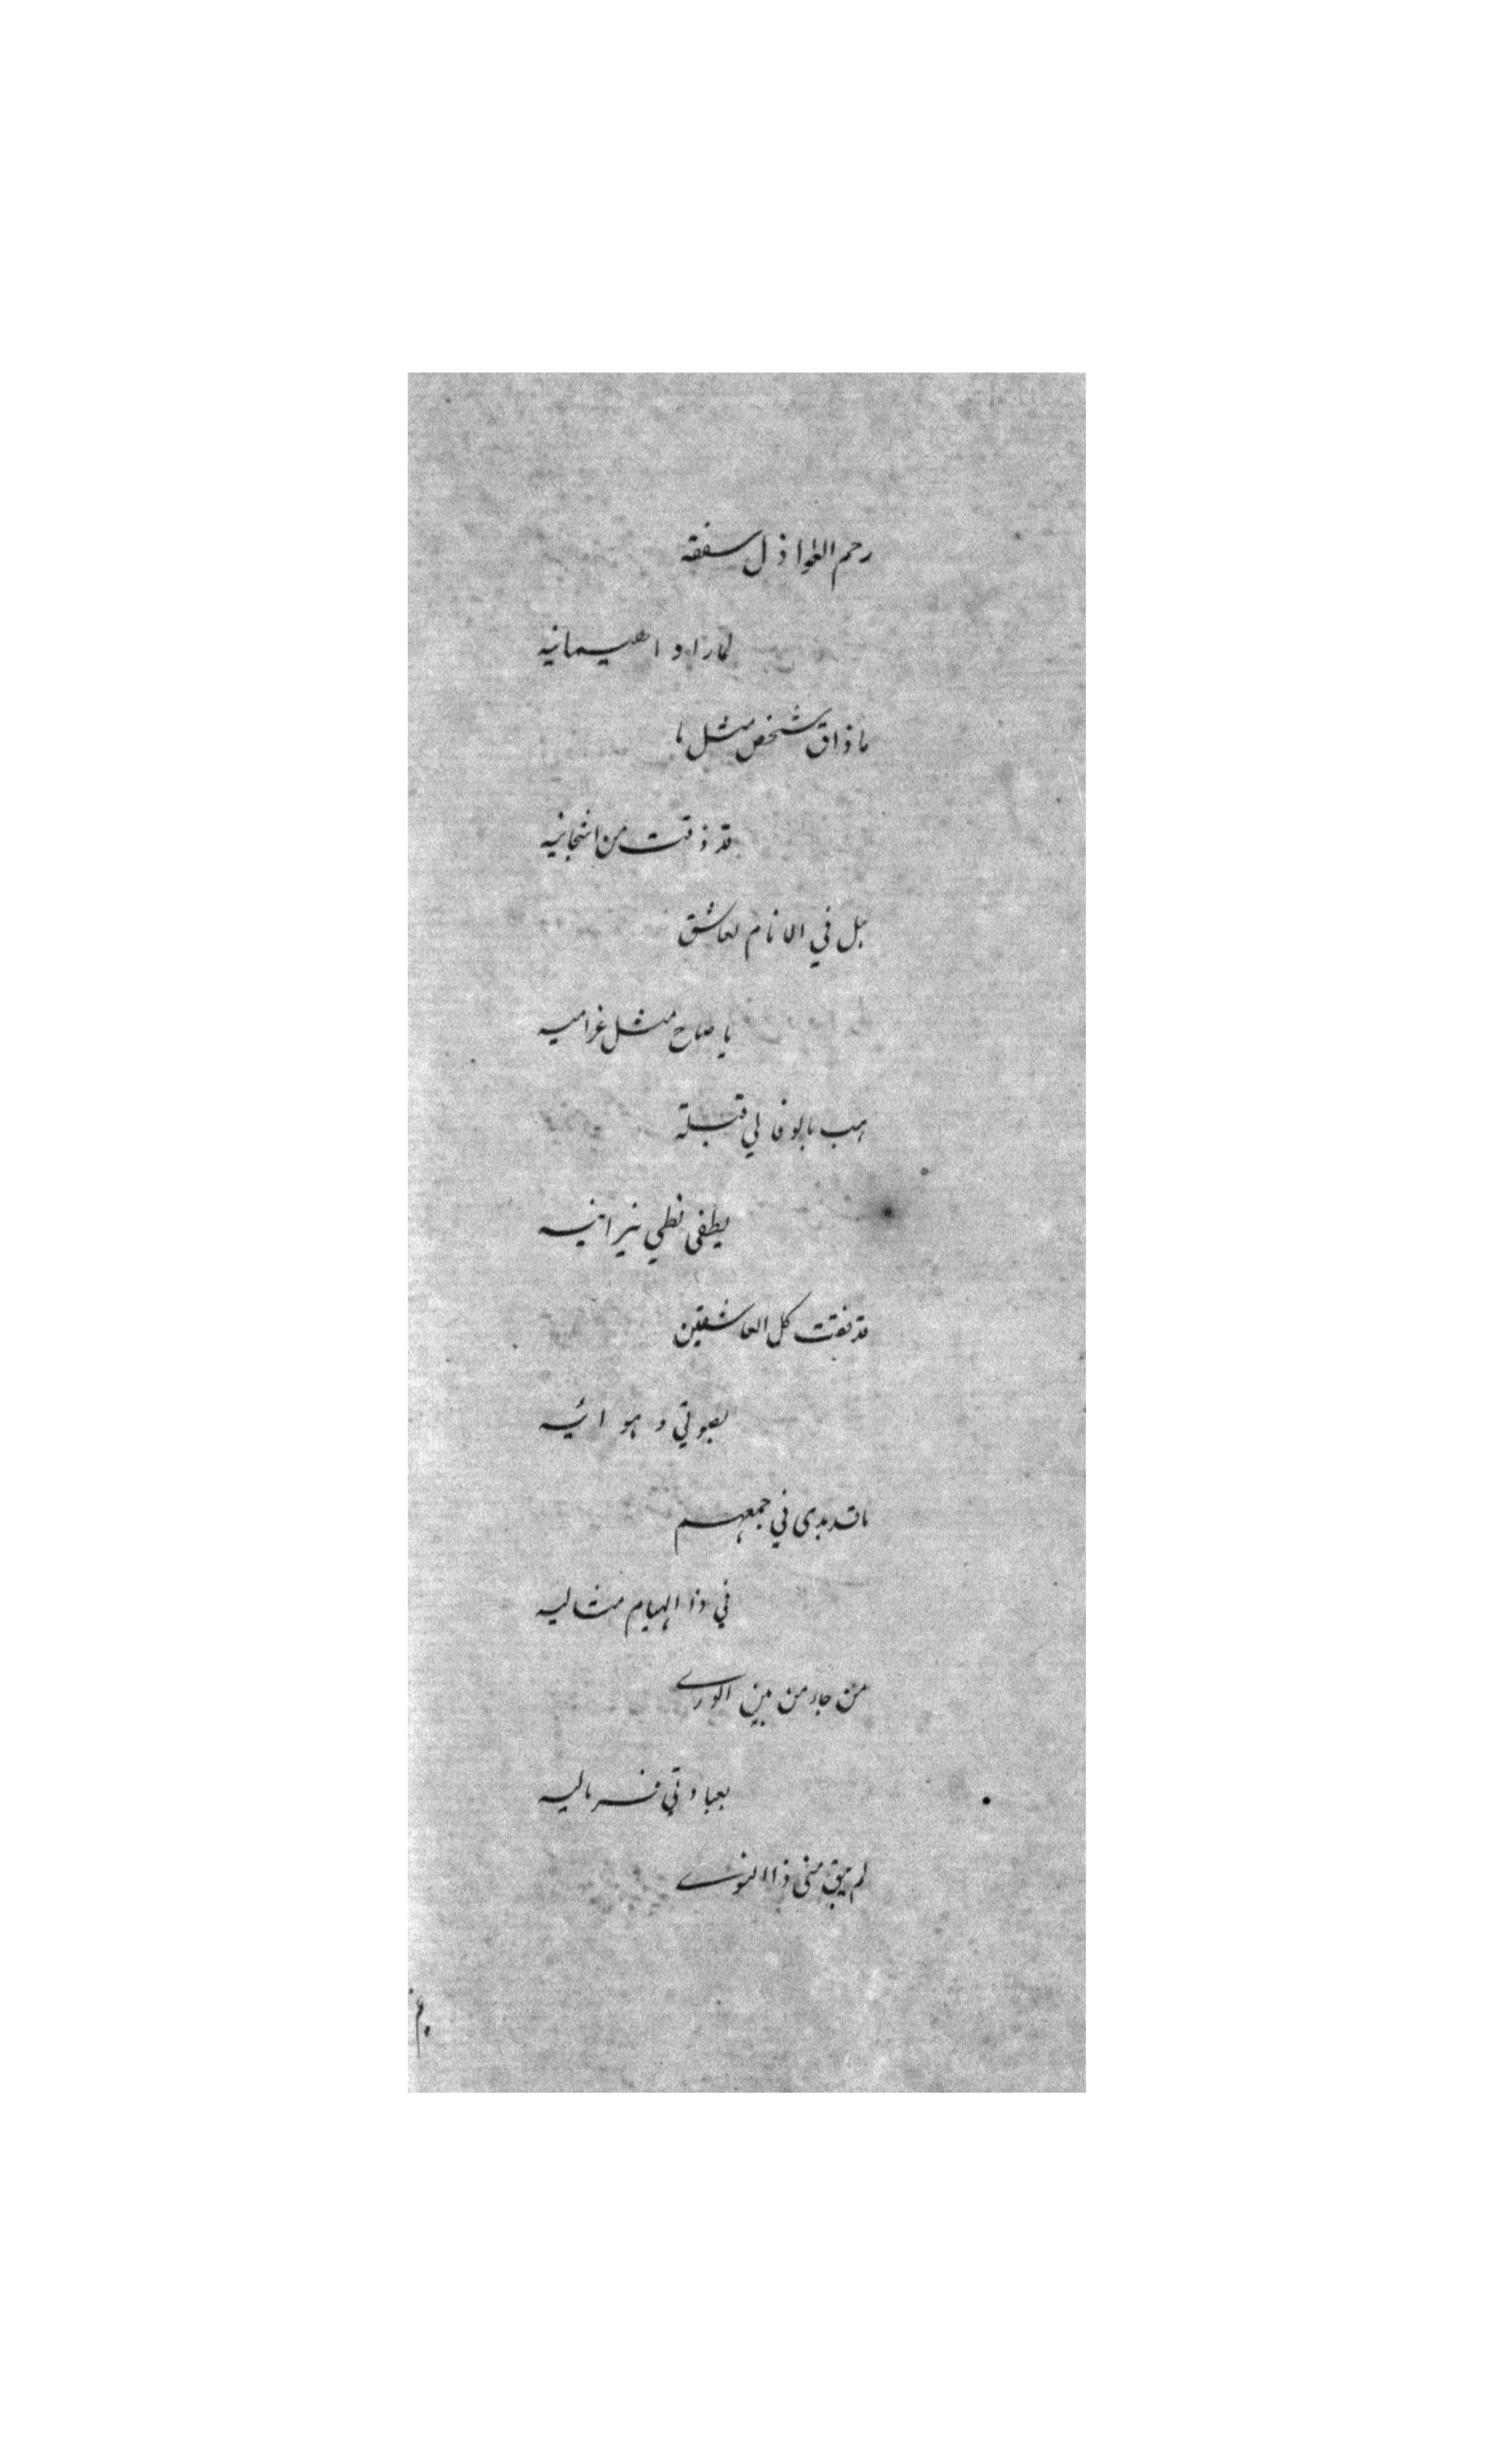 رحم العواذل سفقه
لما راوا هيمانيه
ما ذاق شخص مثل ما
قد ذقت من اشجانيه
هل في الانام لعاشق
يا صاح مثل غراميه
هب بالوفا لي قبلة
يطفى لظي نيرانيه
قد فقت كل العاشقين
بصبوتي و هوائيه
ما قد بدى في جمعهم
في ذا الهيام مثاليه
من جاء من بين الورے
لم يبق مني ذا النوے